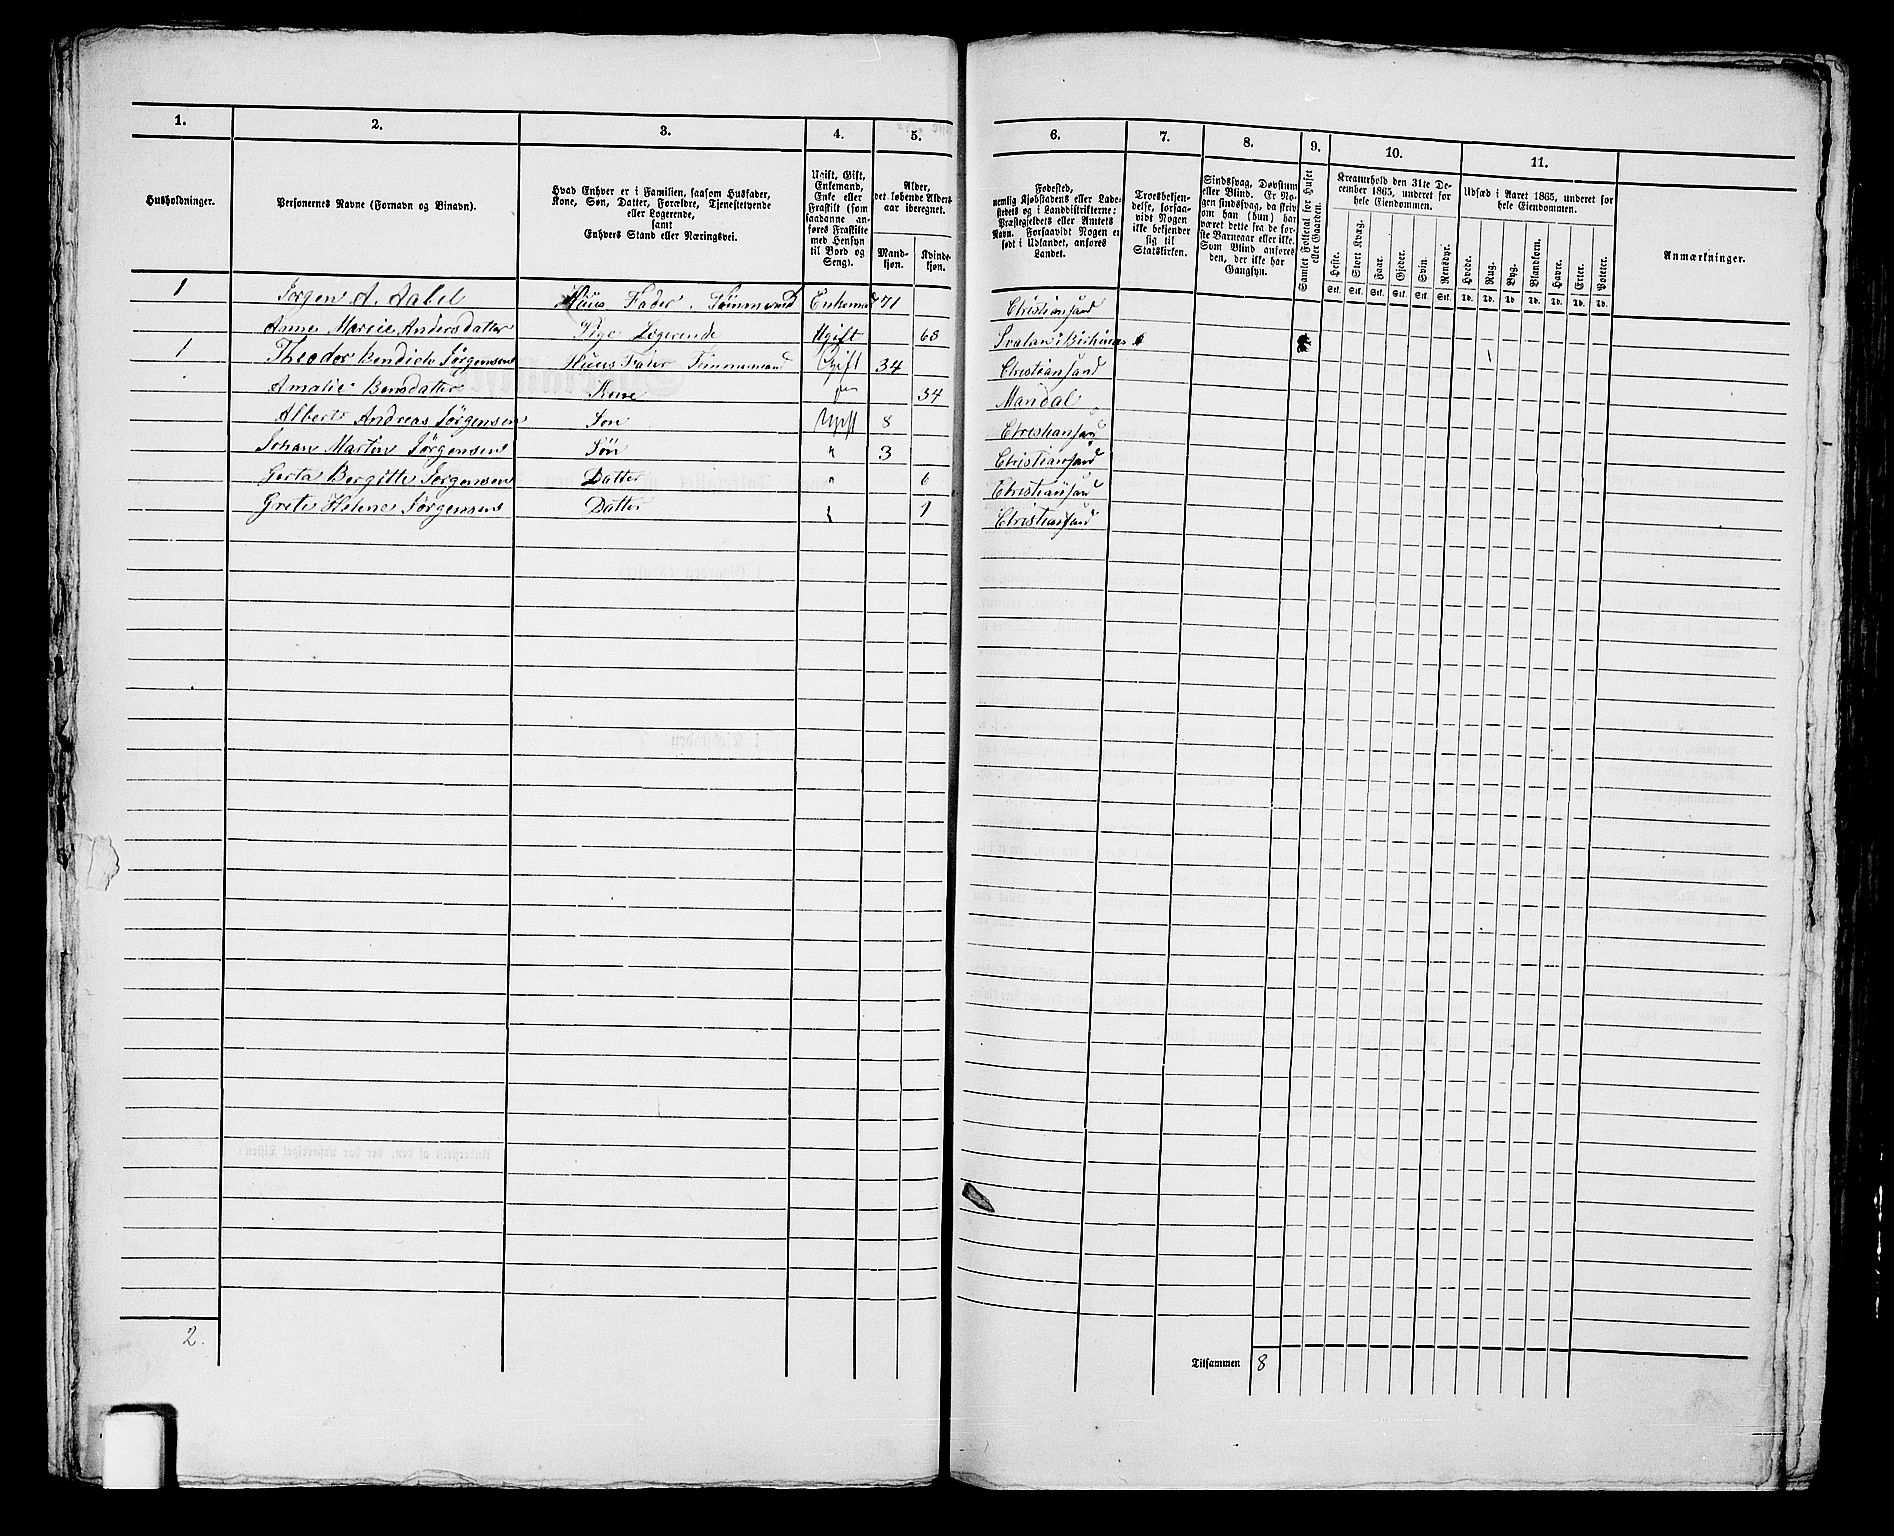 1. 2. 3. 4. 5. 6. 7. 8. 9. 10. 11.
Husholdninger.
Personernes Navne (Fornavn og Binavn).
Hvad Enhver er i Familien, saasom Husfader,
Kone, Søn, Datter, Forældre, Tjenestetyende
eller Logerende,
samt
Enhvers Stand eller Næringsvei.
Ugift, Gift,
Enkemand,
Enke eller
Fraskilt (som
saadanne an-
føres Fraskilte
med Hensyn
til Bord og
Seng).
Alder,
det løbende Alders-
aar iberegnet.
Mand-
kjøn.
Kvinde-
kjøn.
Fødested,
nemlig Kjøbstadens eller Lade-
stedets og i Landdistrikterne:
Præstegjeldets eller Amtets
Navn. Forsaavidt Nogen er
født i Udlandet, anføres
Landet.
Troesbekjen-
delse, forsaa-
vidt Nogen
ikke bekjender
sig til
Statskirken.
Sindssvag, Døvstum
eller Blind. Er No-
gen sindssvag, da skriv
om han (hun) har
været dette fra de før-
ste Barneaar eller ikke.
Som Blind anføres
den, der ikke har
Gangsyn.
Samlet Folketal for Huset
eller Gaarden.
Kreaturhold den 31te De-
cember 1865, underet for
hele Eiendommen.
Heste. Stort Kvæg. Faar. Gjeder. Svin. Rensdyr.
Stk. Stk. Stk. Stk. Stk. Stk.
Udsæd i Aaret 1865, underet for
hele Eiendommen.
Hvede. Rug. Byg. Blandkorn. Havre. Erter. Poteter.
Td. Td. Td. Td. Td. Td. Td.
Anmærkninger.
1 Jørgen A. Aabel Huus Fader. Tømmermand Enkemand 71 Christiansand
Anne Marie Andersdatter Pige Logerende Ugift 68
1 Theodor Bendick Jørgensen Huus Fader Timmermand Gift 34 Christiansand
Amalie Bensdatter Kone 34 Mandal
Albert Andreas Jørgensen Søn Ugift 8 Christiansand
Johan Martin Jørgensen Søn " 3 Christiansand
Berta Bergitte Jørgensen Datter " 6 Christiansand
Grete Helene Jørgensen Datter 1 Christiansand
2.
Tilsammen 8